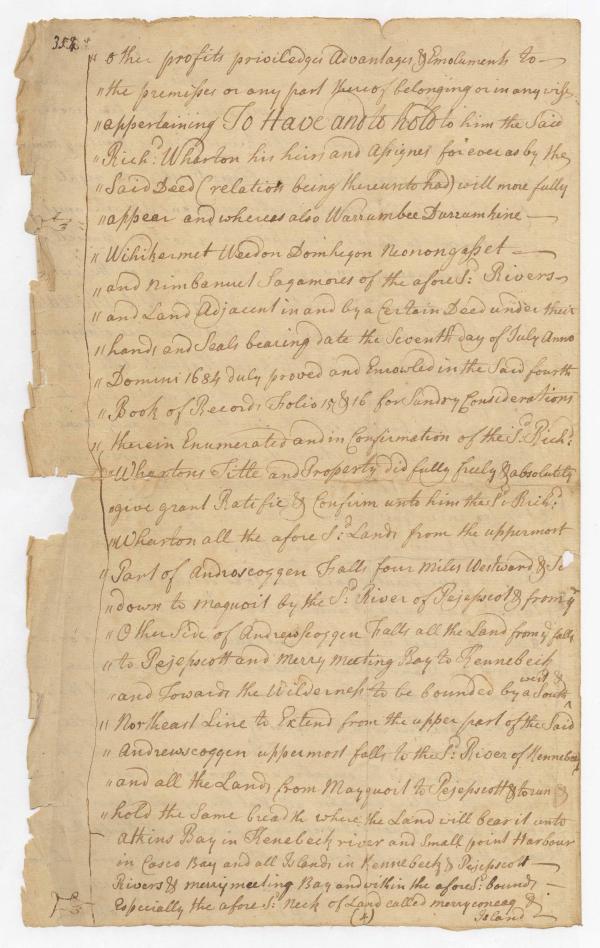 358
" Other profits priviledges Advantages & Emoluments to —
" the premisses or any part thereof belonging or in any wise
" appertaining To Have and to hold to him the Said
" Rich.d Wharton his heirs and Assignes for ever as by the
" Said Deed (relation being thereunto had) will more fully
" appear and whereas also Warrumbee Darrumkine —
" Wihikermet Weedon Domhegon Neonongasset —
" and Nimbanuet Sagamores of the afore S.d Rivers —
" and Land Adjacent in and by a Certain Deed under their
" hands and Seals bearing date the Seventh day of July Anno
" Domini 1684 duly proved and Enrowled in the Said fourth
" Book of Records Folio 15 & 16 for Sundry Considerations
" therein Enumerated and in Confirmation of the S.d Rich.d
" Whartons Title and Property did fully freely & absolutely
" give grant Ratifie & Confirm unto him the S.d Rich.d
" Wharton all the afore S.d Lands from the uppermost
" Part of Androscoggen Falls four Miles Westward & So
" down to Maquoit by the S.d River of Pejepscot & from ye
" Other Side of Andrewscoggen Falls all the Land from ye falls
" to Pejepscott and Merry Meeting Bay to Kennebeck
" and Towards the Wilderness to be bounded by a South west &
" Northeast Line to Extend from the upper part of the Said
" Andrewscoggen uppermost falls to the S.d River of Kennebeck
" and all the Lands from Mayquoit to Pejepscott & to run &
" hold the Same breadth where the Land will bear it unto
Atkins Bay in Kenebeck river and Small point Harbour
in Casco Bay and all Islands in Kennebeck & Pejepscott —
Rivers & merry meeting Bay and within the afore S.d bounds —
Especially the afore S.d Neck of Land called merryconeag &
(4) Island